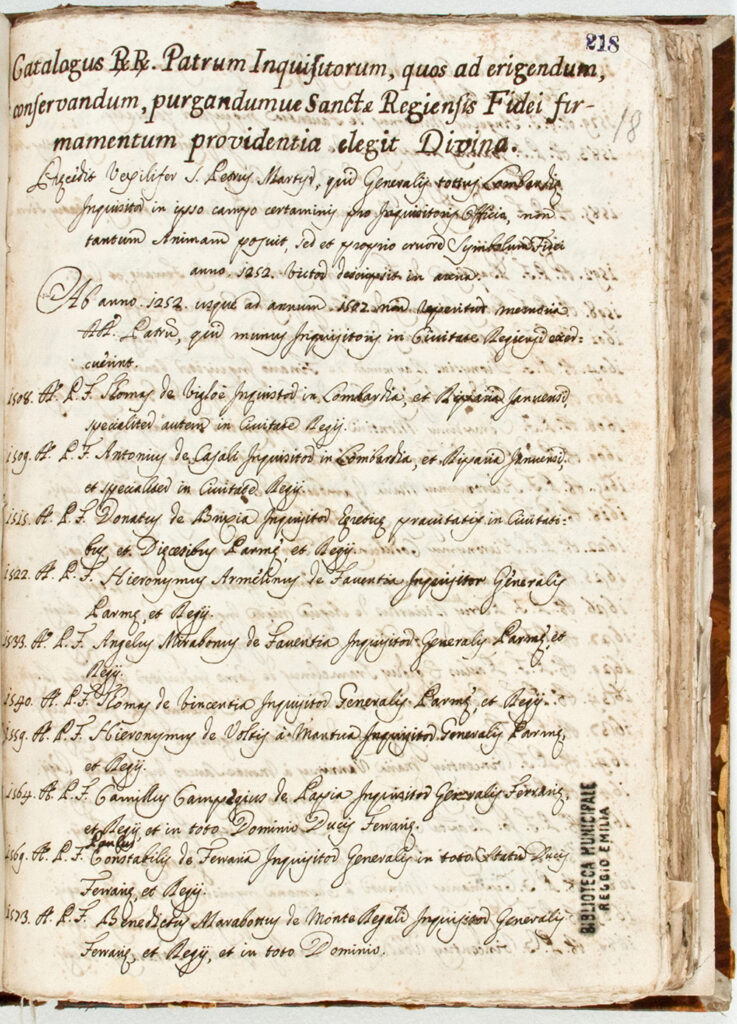 218
18
Catalogus RR. Patrum Inquisitorum, quos ad erigendum,
conservandum, purgandumue Sanctæ Regiensis Fidei fir-
mamentum providentia elegit Divina.
Vexilifer S. Petrus Martyr, qui Generalis totius Lombardiæ
Inquisitor in ipso campo certaminis pro Inquisitionis Officio, non
tantum Animam posuit, sed et proprio cruore Symbolum Fidei
anno. 1252. Victor descripsit in arena.
Ab anno. 1252. usque ad annum. 1507 non reperitur memoria
Patrū, qui munus Inquisitoris in Civitate Regij exer-
cuerint.
1508. A. P. F. Thomas de Inquisitor in Lombardia, et Riparia Januensi,
specialiter autem in Civitate Regij.
1509. A. P. F. Antonius de Casali Inquisitor in Lombardia, et Riparia Januensi,
et specialiter in Civitate Regij.
1515. A. P. F. Donatus de Brixia Inquisitor pravitatis in Civitati-
bus, et Diœcesibus Parmę, et Regij.
1522. A. P. F. Hieronymus Armelinus de Faventia Inquisitor Generalis
Parmę, et Regij.
1533. A. P. F. Angelus Mirabonus de Faventia Inquisitor Generalis Parmę, et
Regij.
1540. A. P. F. Thomas de Vincentia Inquisitor Generalis Parmę, et Regij.
1559. A. P. F. Hieronymus de Voltis à Mantua Inquisitor Generalis Parmę,
et Regij.
1564. A. P. F. Camillus Campegius de Papia Inquisitor Generalis Ferrarię,
et Regij et in toto Dominio Ducis Ferrarię.
1569. A. P. F. Paulus Constabilis de Ferraria Inquisitor Generalis in toto Statu Ducis
Ferrarię, et Regij.
1573. A. P. F. Benedictus Marabottus de Monte Regali Inquisitor Generalis
Ferrarię, et Regij, et in toto Dominio.
BIBLIOTECA MUNICIPALE
REGGIO EMILIA